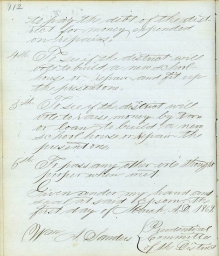 112
to pay the debt of the dist
rict for money expended
on repairs.
4th To see if the district will
vote to build a new school
house or repair and fit up
the present one.
5th To see if the district will
vote to raise money by tax
or loan to build a new
school house or repair the
present one.
6th To pass any other vote thought
proper when met
Given under my hand and
seal at said
first day of March A.D. 1862
Wm A Sanders
Prudential
Committee
of the District